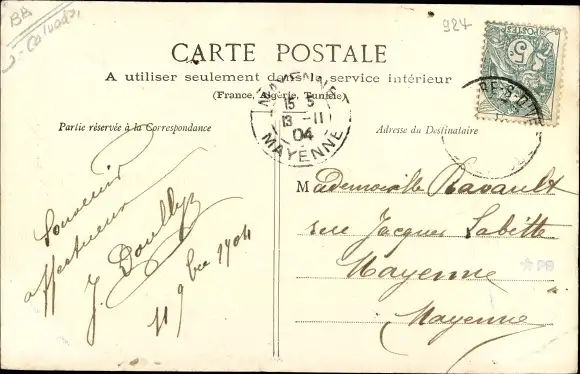 BB
Calvados
924
CARTE POSTALE
A utiliser seulement dans le service intérieur
(France, Algérie, Tunisie)
Partie réservée à la Correspondance
Adresse du Destinataire
MAYENNE
15 5
13 -11
04
MAYENNE
POSTES
5c
Souvenir
affectueux
J.
11 9bre 1904
Mademoiselle Ravault
rue Jacques Labitte
Mayenne
Mayenne
PB